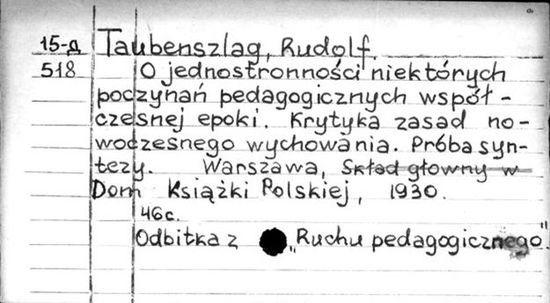 15-д Taubenszlag, Rudolf.
518 O jednostronności niektórych
poczynań pedagogicznych współ-
czesnej epoki. Krytyka zasad no-
woczesnego wychowania. Próba syn-
tezy. Warszawa, Skład głowny w
Dom Książki Polskiej, 1930.
46c.
Odbitka z „Ruchu pedagogicznego".